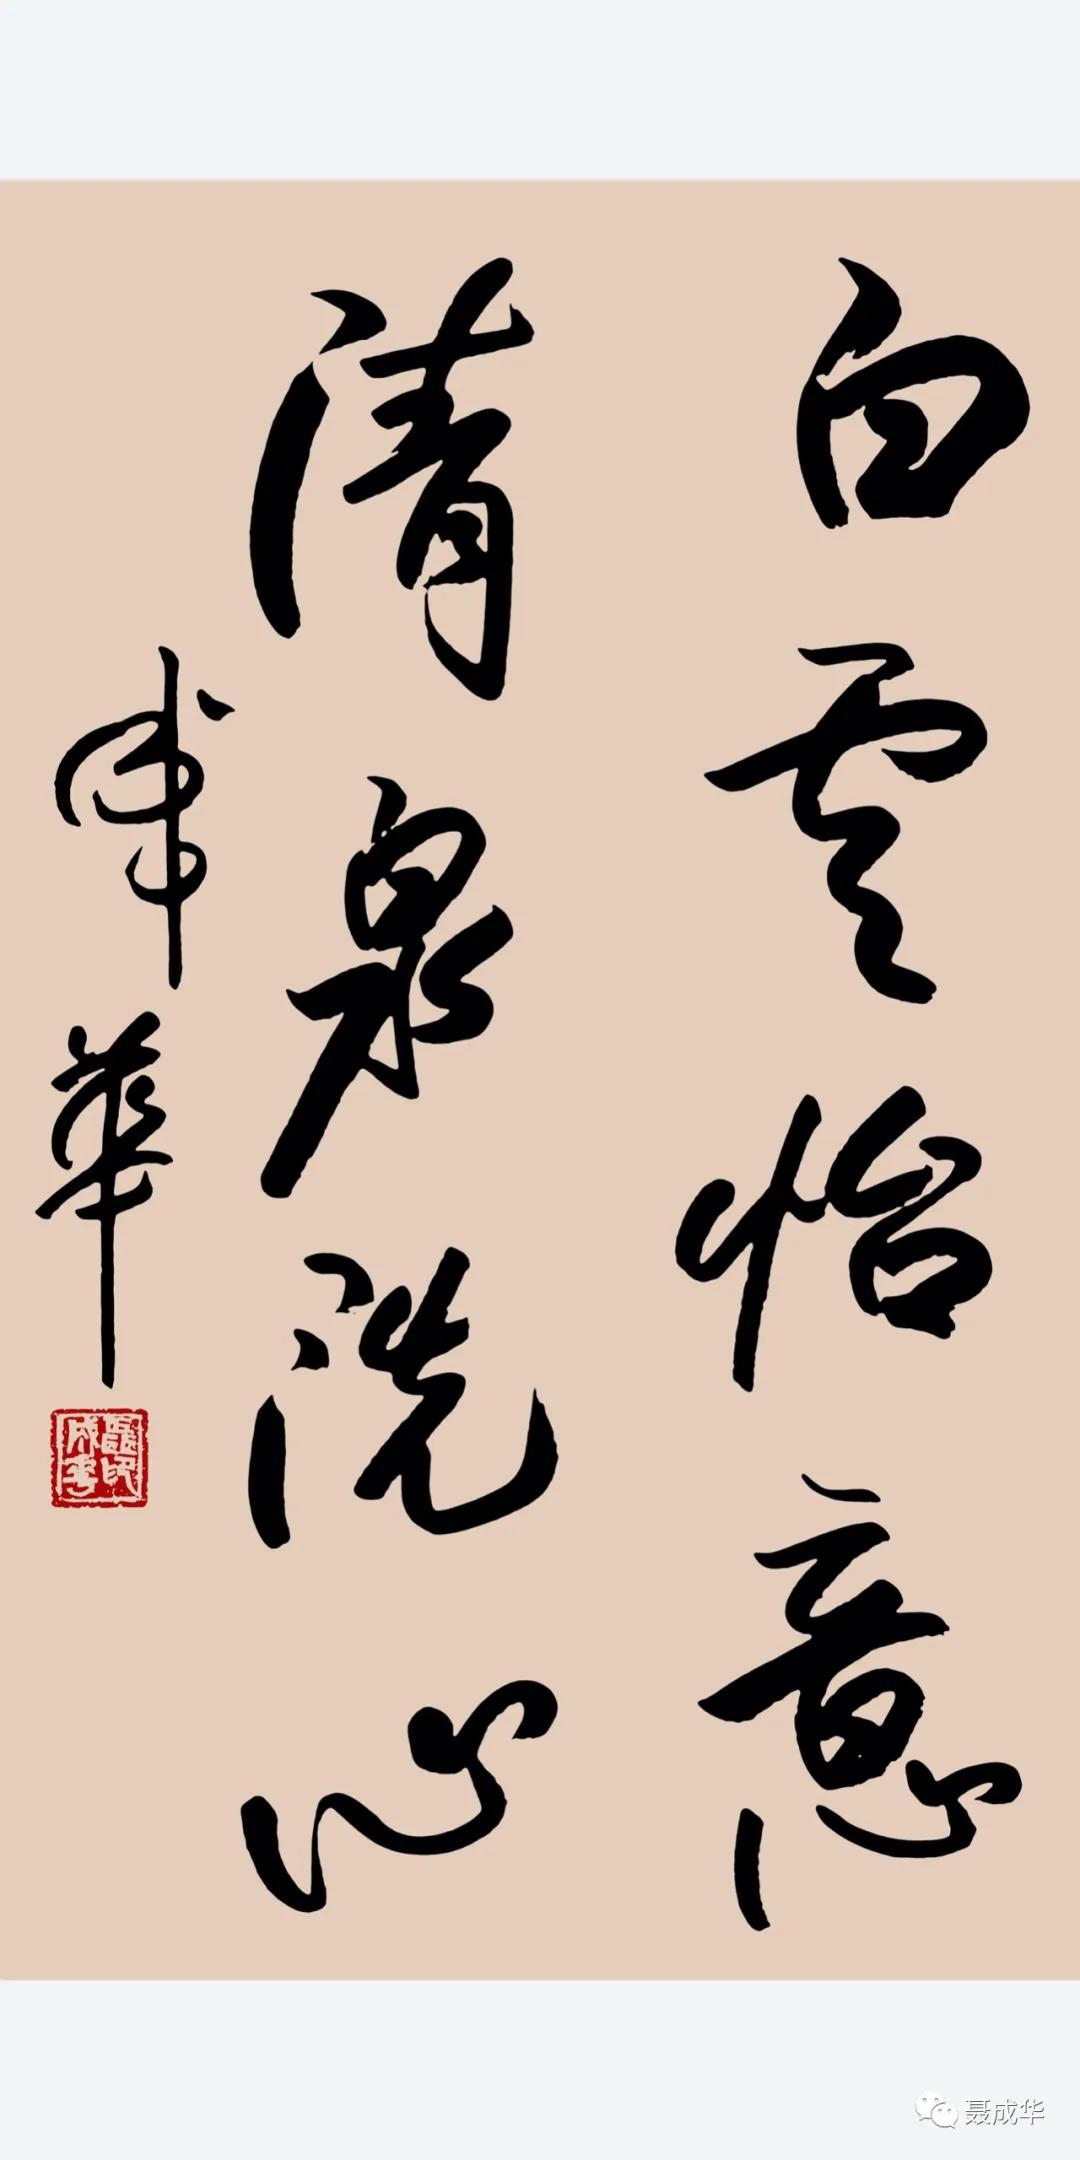 白云怡意
清泉洗心
成華
聂印成华
聂成华